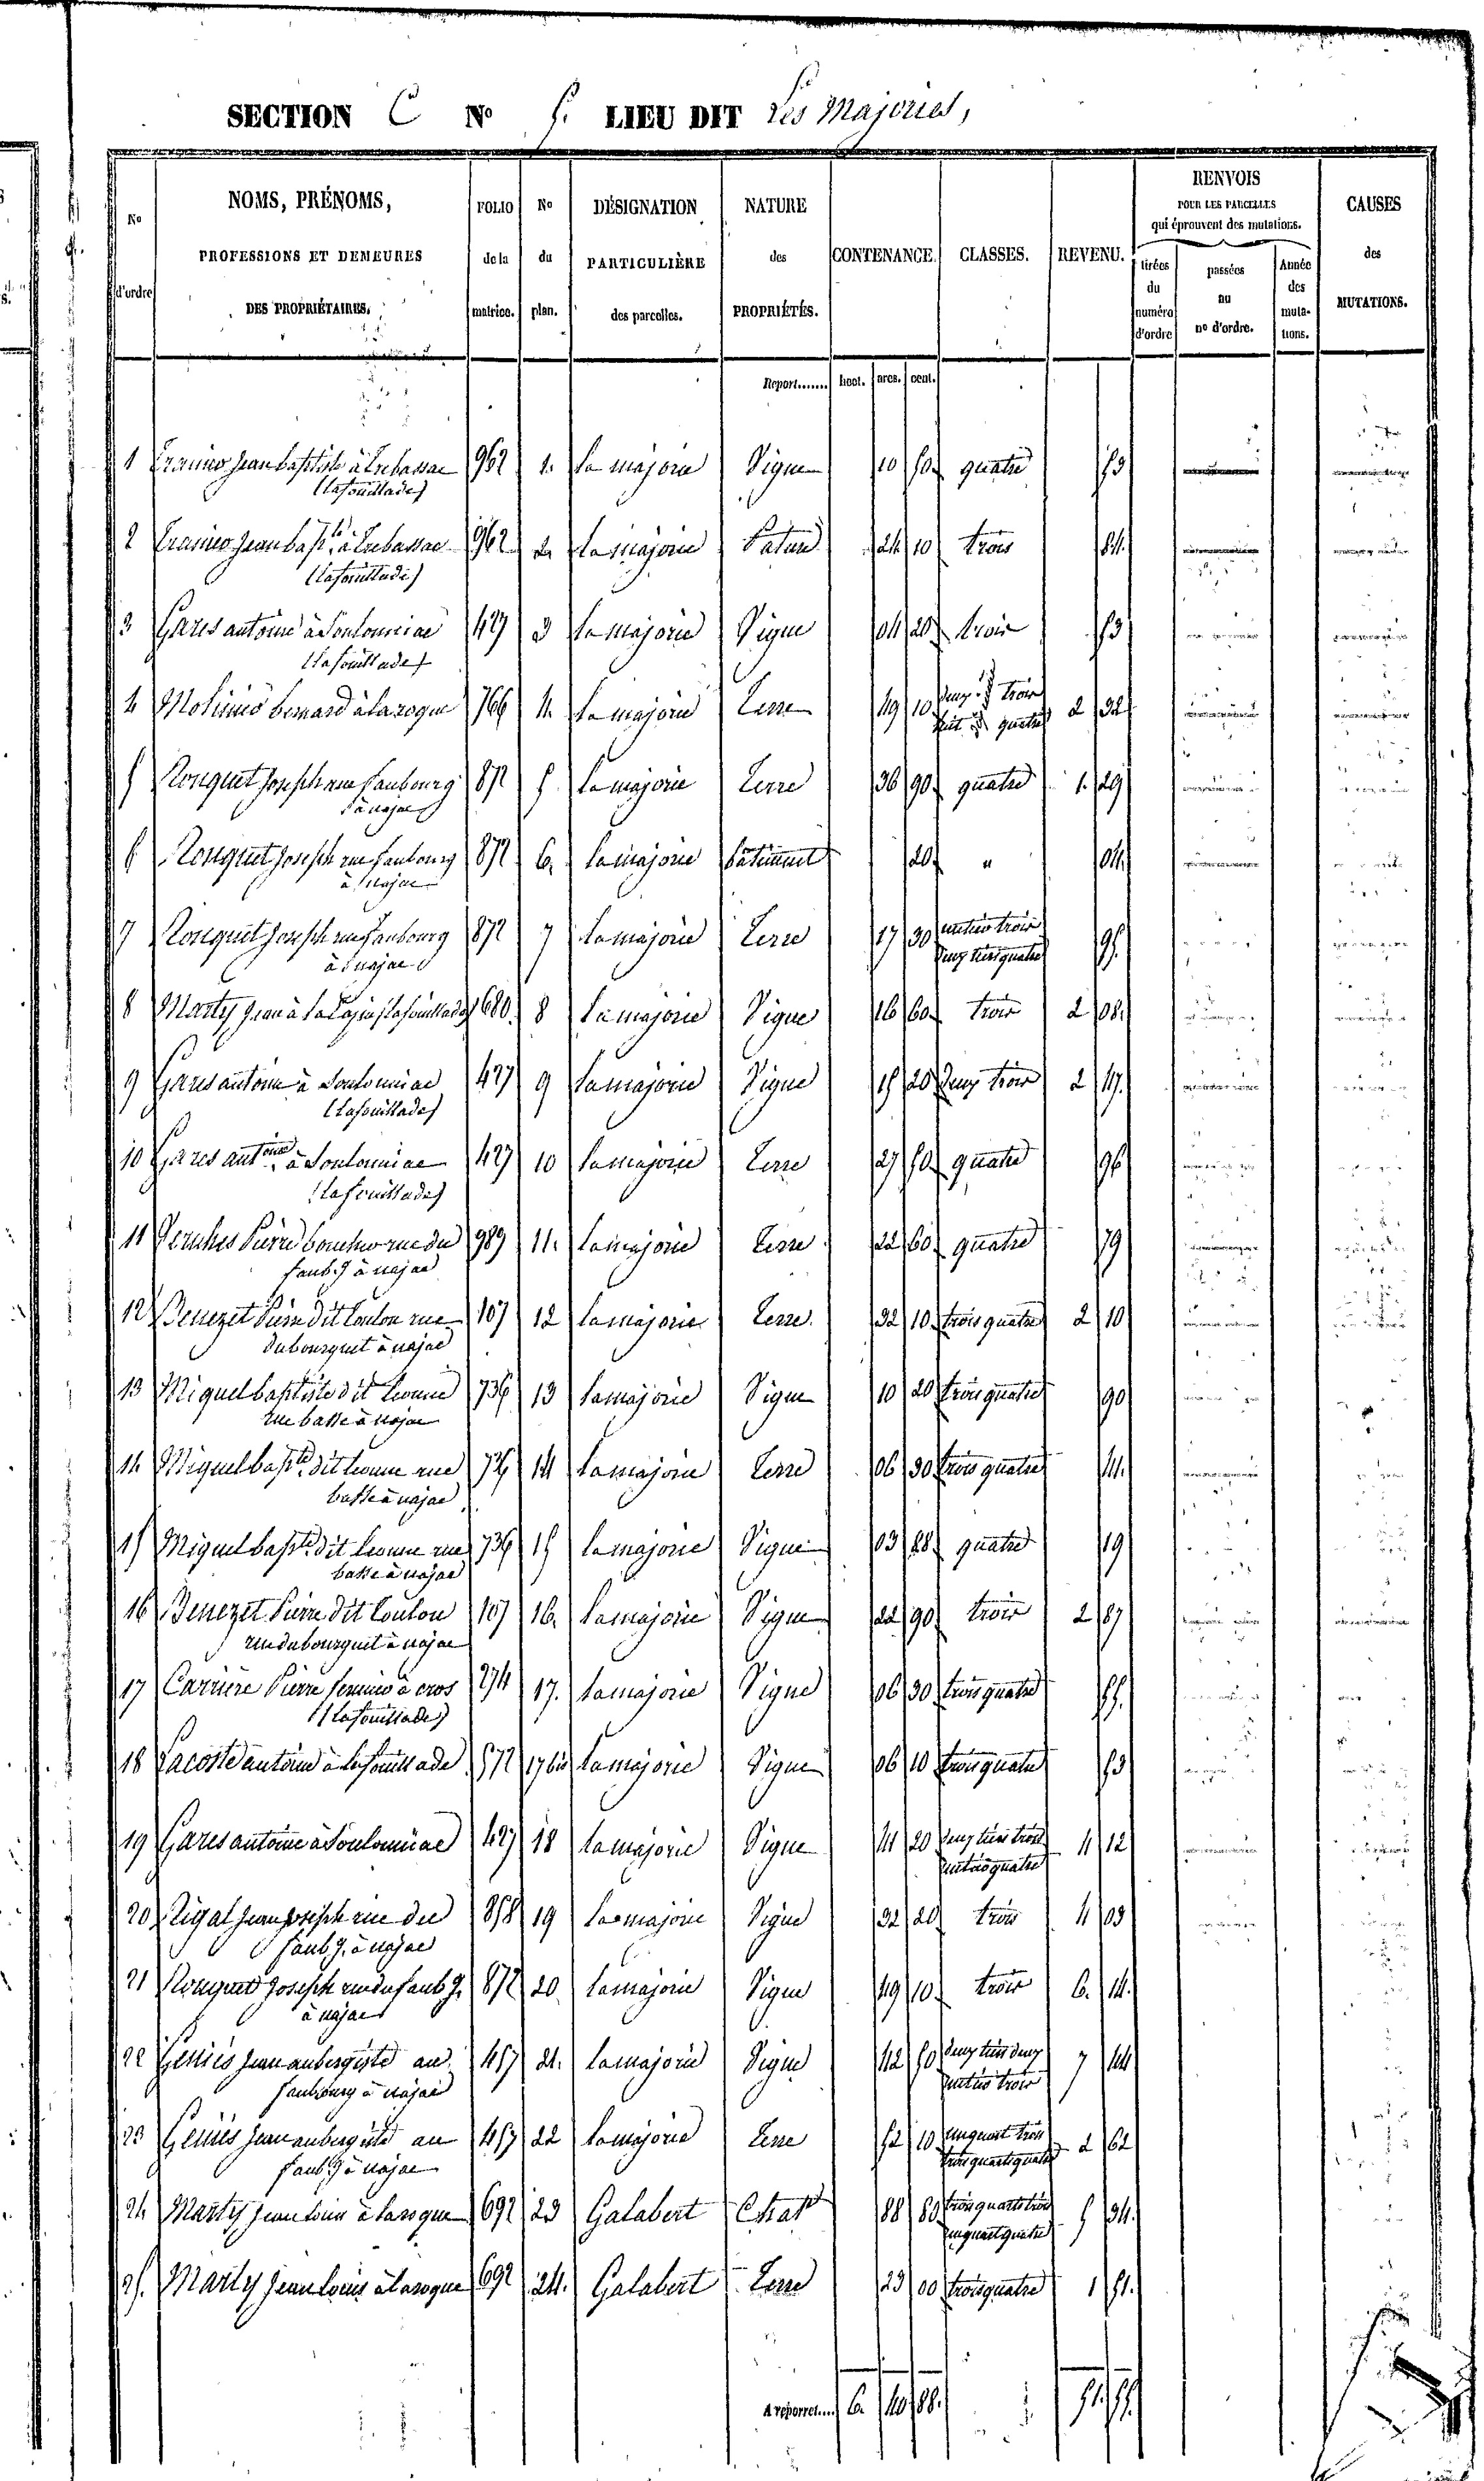 SECTION C No 5. LIEU DIT Les Majories,
No d'ordre
NOMS, PRÉNOMS, PROFESSIONS ET DEMEURES DES PROPRIÉTAIRES.
FOLIO de la matrice.
No du plan.
DÉSIGNATION PARTICULIÈRE des parcelles.
NATURE des PROPRIÉTÉS.
CONTENANCE.
CLASSES.
REVENU.
RENVOIS POUR LES PARCELLES qui éprouvent des mutations.
tirées du numéro d'ordre
passées au no d'ordre.
Année des mutations.
CAUSES des MUTATIONS.
Report....... hect. ares. cent.
1 jean baptiste à 962 1. la majorie Vigne 10 50 quatre 53
(lafouillade)
2 jean bapte à 962 2. la majorie Pature 24 10 trois 84.
(lafouillade)
3 Gares antoine à Soulouniac 427 3 la majorie Vigne 04 20 trois 53
(lafouillade)
4 Molinié bernard à laroque 766 4. la majorie Terre 49 10 trois quatre 2 32
5 Rouquet Joseph rue faubourg 872 5. la majorie Terre 36 90 quatre 1. 29
à najac
6 Rouquet Joseph rue faubourg 872 6. la majorie bâtiment 20 " 04.
à najac
7 Rouquet Joseph rue faubourg 872 7 la majorie Terre 17 30 un tiers trois deux tiers quatre 95.
à najac
8 Marty Jean à (lafouillade) 680. 8 la majorie Vigne 16 60 trois 2 08.
9 Gares antoine à Soulouniac 427 9 la majorie Vigne 15 20 deux trois 2 47.
(lafouillade)
10 Gares antoine à Soulouniac 427 10 la majorie Terre 27 50 quatre 96
(lafouillade)
11 Pierre boucher rue du 989 11. la majorie Terre 22 60 quatre 79
faubg à najac
12 Benezet Pierre dit toulon rue 107 12 la majorie Terre. 32 10 trois quatre 2 10
du bourguet à najac
13 Miquel baptiste dit 736 13 la majorie Vigne 10 20 trois quatre 90
rue basse à najac
14 Miquel bapte dit rue 736 14 la majorie Terre 06 30 trois quatre 41.
basse à najac
15 Miquel bapte dit rue 736 15 la majorie Vigne 03 88 quatre 19
basse à najac
16 Benezet Pierre dit toulon 107 16. la majorie Vigne 22 90 trois 2 87
rue du bourguet à najac
17 Carrière Pierre à cros 274 17. la majorie Vigne 06 30 trois quatre 55.
(lafouillade)
18 Lacoste antoine à lafouillade 572 17 bis la majorie Vigne 06 10 trois quatre 53
19 Gares antoine à Soulouniac 427 18 la majorie Vigne 41 20 deux tiers trois un tiers quatre 4 12
20 Rigal jean joseph rue du 858 19 la majorie Vigne 32 20 trois 4 03
faubg. à najac
21 Rouquet Joseph rue du faubg. 872 20 la majorie Vigne 49 10 trois 6. 14.
à najac
22 Geniès jean aubergiste au 457 21. la majorie Vigne 42 50 deux tiers deux un tiers trois 7 44
faubourg à najac
23 Geniès jean aubergiste au 457 22 la majorie Terre 52 10 un quart trois trois quarts quatre 2 62
faubg à najac
24 Marty jean louis à laroque 692 23 Galabert Chatr 88 80 trois quarts trois un quart quatre 5 34.
25. Marty jean louis à laroque 692 24. Galabert Terre 23 00 trois quatre 1 51.
A reporter.... 6. 40 88. 51. 55.